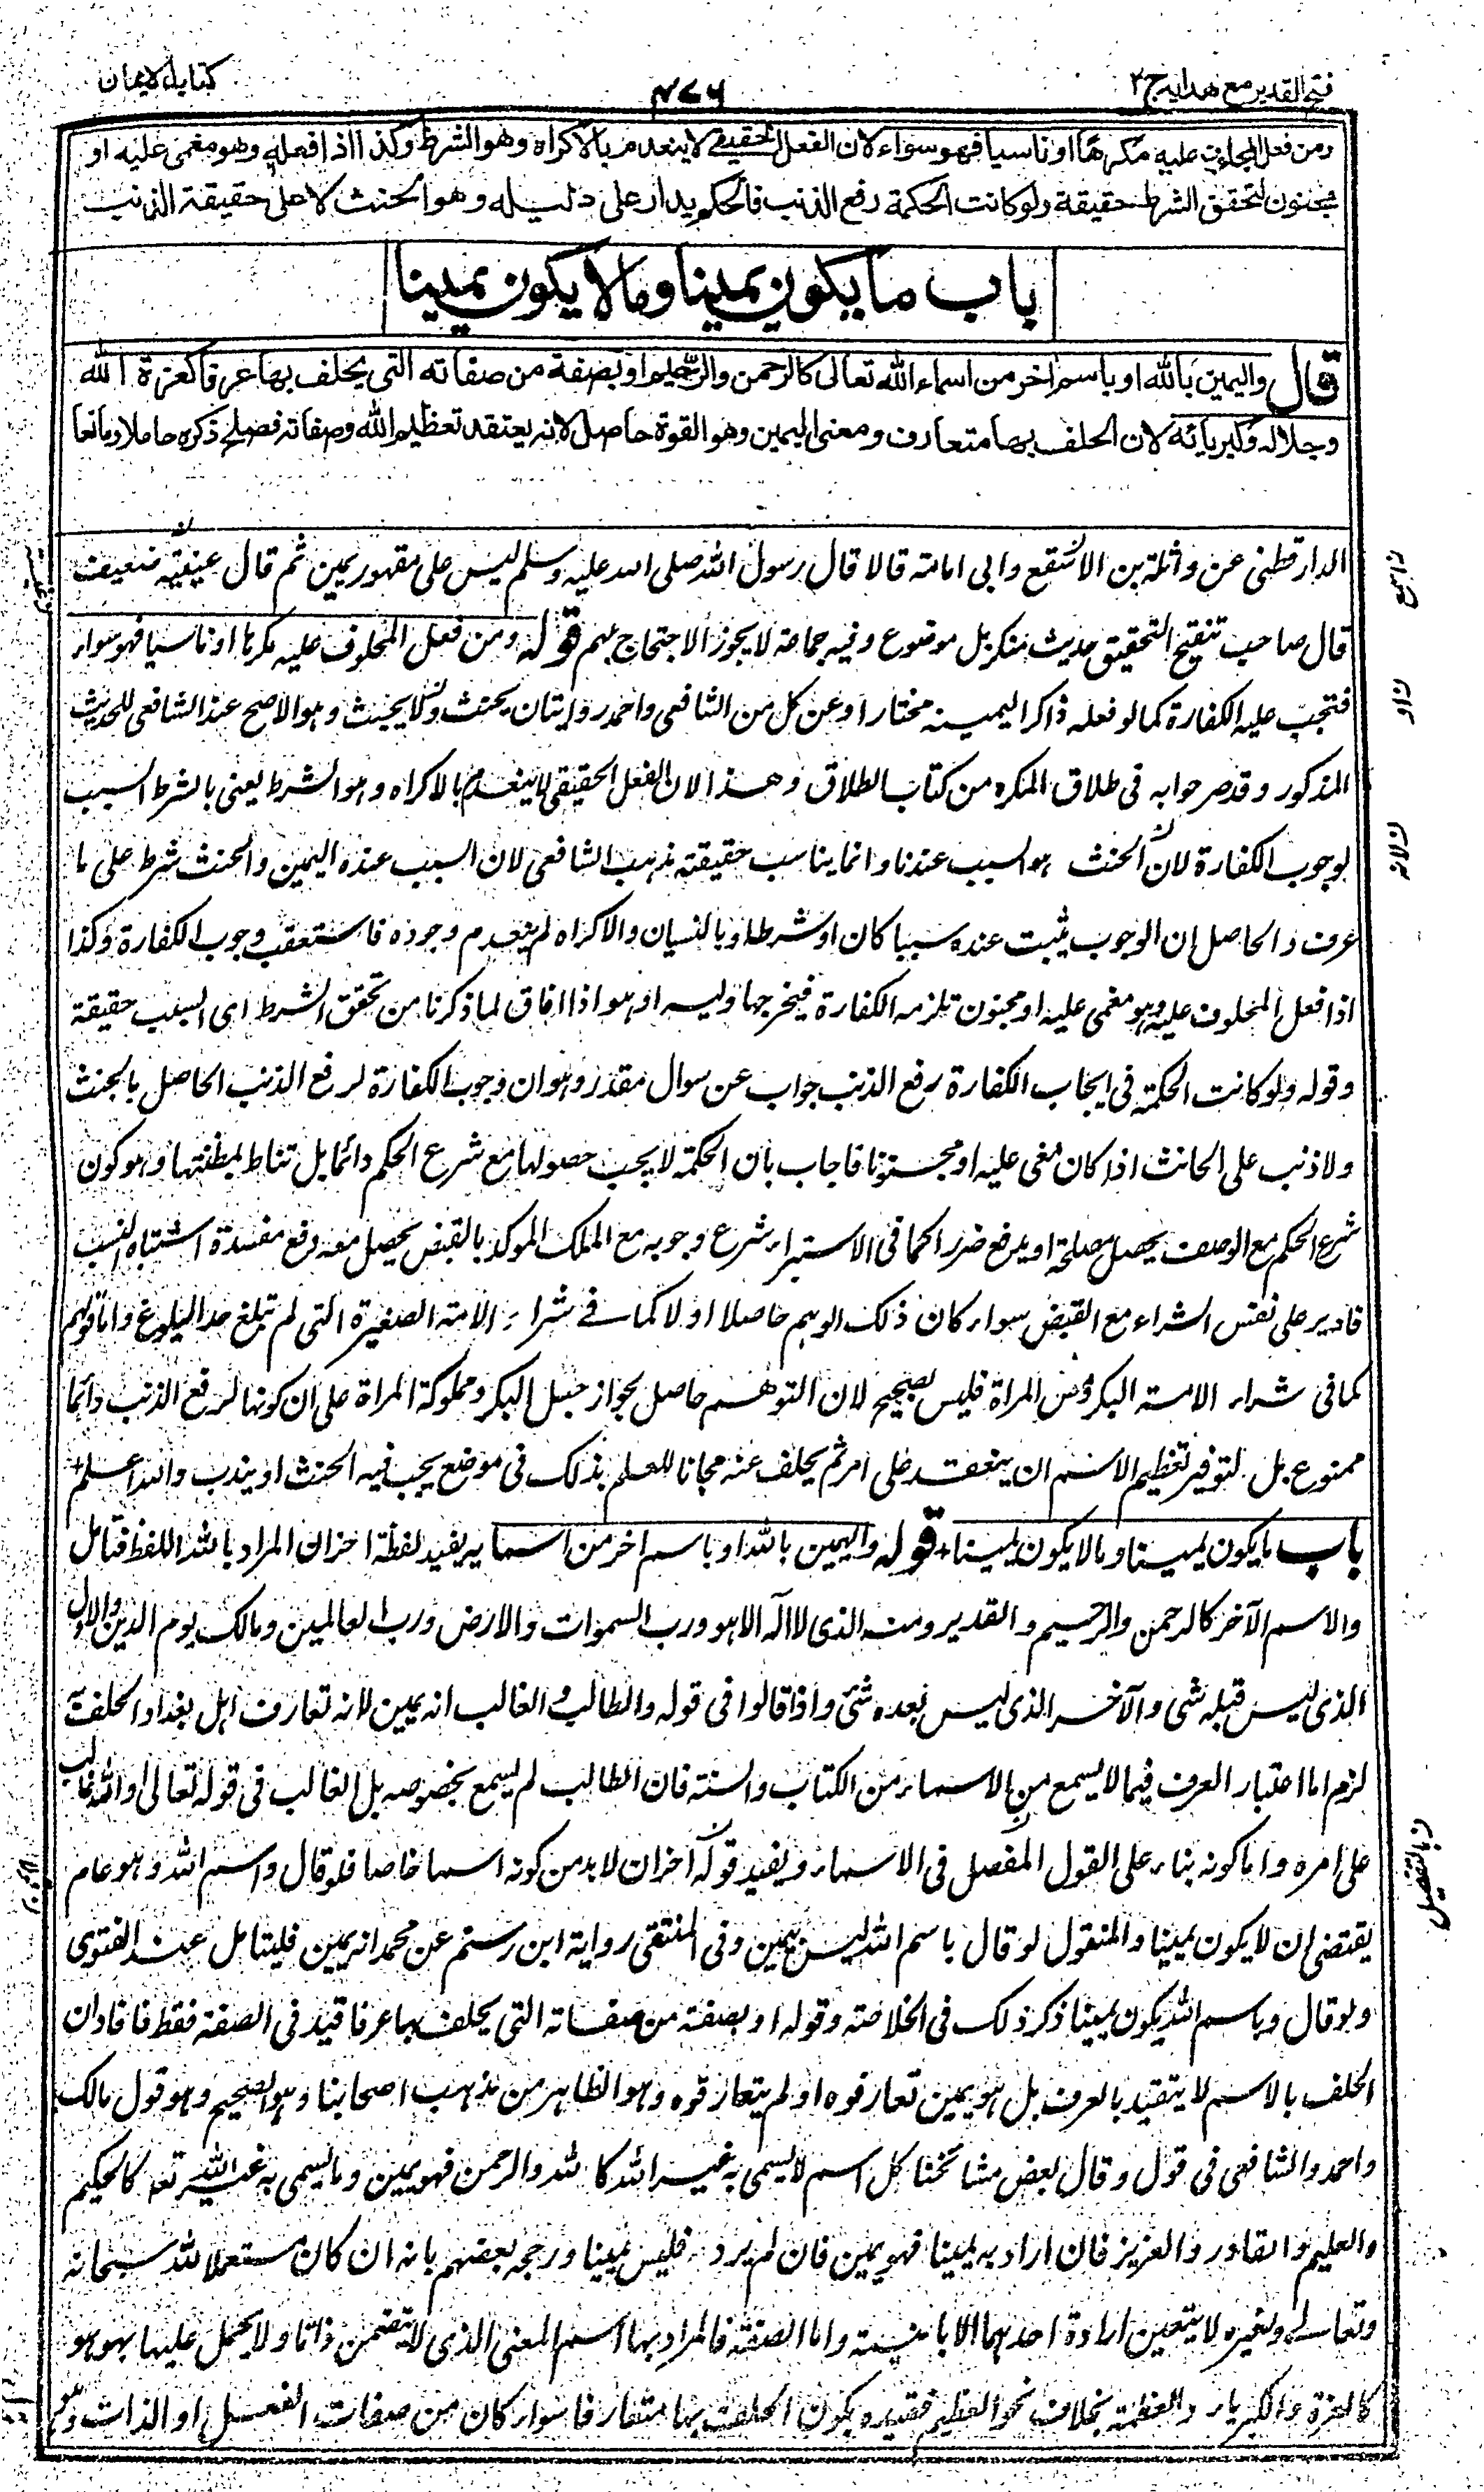 فتح القدير مع هدايه ج ٢
٤٧٦
كتاب الايمان
ومن فعل المحلوف عليه مكرها او ناسيا فهو سواء لان الفعل الحقيقي لا ينعدم بالاكراه وهو الشرط وكذا اذا فعله وهو مغمى عليه او
مجنون لتحقق الشرط حقيقة ولو كانت الحكمة رفع الذنب فالحكم يدار على دليله وهو الحنث لا على حقيقة الذنب
باب ما يكون يمينا وما لا يكون يمينا
قال واليمين بالله او باسم اخر من اسماء الله تعالى كالرحمن والرحيم او بصفة من صفاته التي يحلف بها عرفا كعزة الله
وجلاله وكبريائه لان الحلف بها متعارف ومعنى اليمين وهو القوة حاصل لانه يعتقد تعظيم الله وصفاته فصلح ذكره حاملا ومانعا
الدارقطني عن واثلة بن الاسقع وابي امامة قالا قال رسول الله صلى الله عليه وسلم ليس على مقهور يمين ثم قال عنبسة ضعيف
قال صاحب تنقيح التحقيق حديث منكر بل موضوع وفيه جماعة لا يجوز الاحتجاج بهم قوله ومن فعل المحلوف عليه مكرها او ناسيا فهو سواء
فتجب عليه الكفارة كما لو فعله ذاكرا ليمينه مختارا وعن كل من الشافعي واحمد روايتان يحنث ولا يحنث وهو الاصح عند الشافعي للحديث
المذكور وقد مر جوابه في طلاق المكره من كتاب الطلاق وهذا لان الفعل الحقيقي لا ينعدم بالاكراه وهو الشرط يعني بالشرط السبب
لوجوب الكفارة لان الحنث هو السبب عندنا وانما يناسب حقيقته مذهب الشافعي لان السبب عنده اليمين والحنث شرط على ما
عرف والحاصل ان الوجوب يثبت عنده سببا كان او شرطا وبالنسيان والاكراه لم ينعدم وجوده فاستعقب وجوب الكفارة وكذا
اذا فعل المحلوف عليه وهو مغمى عليه او مجنون تلزمه الكفارة فيخرجها وليه او هو اذا افاق لما ذكرنا من تحقق الشرط اى السبب حقيقة
وقوله ولو كانت الحكمة في ايجاب الكفارة رفع الذنب جواب عن سوال مقدر وهو ان وجوب الكفارة لرفع الذنب الحاصل بالحنث
ولا ذنب على الحانث اذا كان مغمى عليه او مجنونا فاجاب بان الحكمة لا يجب حصولها مع شرع الحكم دائما بل تناط بمظنتها وهو كون
شرع الحكم مع الوصف يحصل مصلحة او يدفع ضررا كما في الاستبراء شرع وجوبه مع الملك الموكد بالقبض يحصل معه دفع مفسدة اشتباه النسب
فادير على نفس الشراء مع القبض سواء كان ذلك الوهم حاصلا او لا كما في شراء الامة الصغيرة التي لم تبلغ حد البلوغ واما قولهم
كما في شراء الامة البكر ومن المراة فليس بصحيح لان التوهم حاصل بجواز حبل البكر ومملوكة المراة على ان كونها لرفع الذنب دائما
ممنوع بل لتوفير تعظيم الاسم ان ينعقد على امر ثم يحلف عنه مجانا للعلم بذلك في موضع يجب فيه الحنث او يندب والله اعلم
باب ما يكون يمينا وما لا يكون يمينا قوله واليمين بالله او باسم اخر من اسمايه يفيد لفظة اخر ان المراد بالله اللفظ فتامل
والاسم الآخر كالرحمن والرحيم والقدير ومنه الذي لا اله الا هو ورب السموات والارض ورب العالمين ومالك يوم الدين والاول
الذي ليس قبله شي والآخر الذي ليس بعده شئ واذا قالوا في قوله والطالب والغالب انه يمين لانه تعارف اهل بغداد الحلف به
لزم اما اعتبار العرف فيما لا يسمع من الاسماء من الكتاب والسنة فان الطالب لم يسمع بخصوصه بل الغالب في قوله تعالى والله غالب
على امره واما كونه بناء على القول المفصل في الاسماء ويفيد قوله آخر ان لابد من كونه اسما خاصا فلو قال واسم الله وهو عام
يقتضى ان لا يكون يمينا والمنقول لو قال باسم الله ليس بيمين وفى المنتقى رواية ابن رستم عن محمد انه يمين فليتامل عند الفتوى
ولو قال وباسم الله يكون يمينا ذكر ذلك في الخلاصة وقوله او بصفة من صفاته التي يحلف بها عرفا قيد في الصفة فقط فافاد ان
الحلف بالاسم لا يتقيد بالعرف بل هو يمين تعارفوه او لم يتعارفوه وهو الظاهر من مذهب اصحابنا وهو الصحيح وهو قول مالك
واحمد والشافعي في قول وقال بعض مشائخنا كل اسم لا يسمى به غير الله كالله والرحمن فهو يمين وما يسمى به غير الله تعه كالحكيم
والعليم والقادر والعزيز فان اراد به يمينا فهو يمين فان لم يرد فليس يمينا ورجحه بعضهم بانه ان كان مستعملا لله سبحانه
وتعالى ولغيره لا يتعين ارادة احدهما الا بالنية واما الصفة فالمراد بها اسم المعنى الذي لا يتضمن ذاتا ولا يحمل عليها بهو هو
كالعزة والكبرياء والعظمة بخلاف نحو العظيم فقيده بكون الحلف بها متعارفا سواء كان من صفات الفعل او الذات وهو